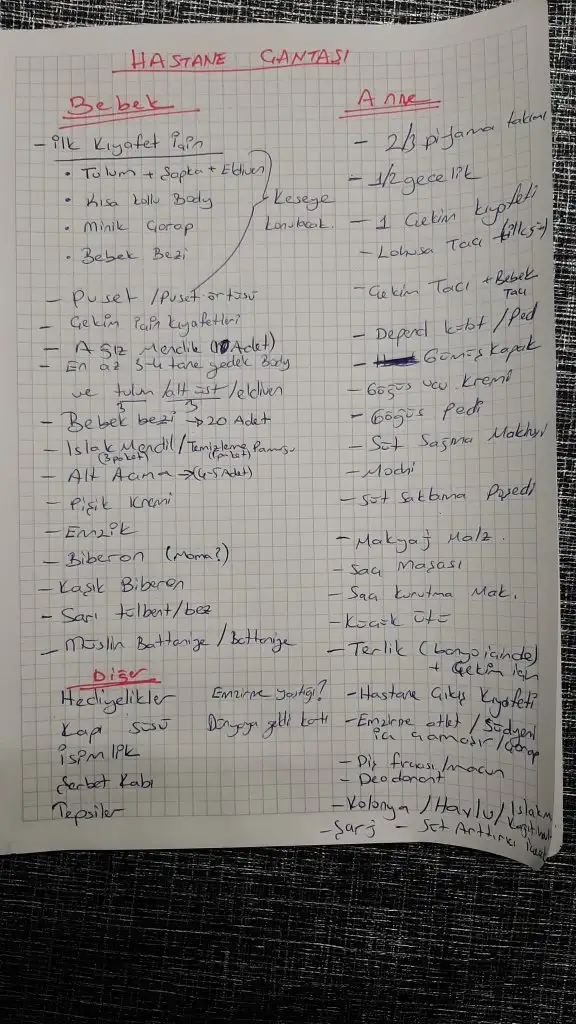 HASTANE ÇANTASI
Bebek
- İlk Kıyafet İçin
• Tulum + Şapka + Eldiven
• Kısa kollu Body
• Minik Çorap
• Bebek Bezi
Keseye
konulacak.
- Puset / Puset örtüsü
- Çekim için kıyafetleri?
- Ağız Mendili (10 Adet)
- En az 3-4 tane yedek Body
ve tulum alt üst / eldiven
3 3
- Bebek bezi → 20 Adet
- Islak Mendil / Temizleme Pamuğu
(3 paket) (1 paket)
- Alt Açma → (4-5 Adet)
- Pişik Kremi
- Emzik
- Biberon (Mama?)
- Kaşık Biberon
- Sarı tülbent/bez
- Müslin Battaniye / Battaniye
Diğer
Hediyelikler
Kapı süsü
İsimlik
Şerbet Kabı
Tepsiler
Emzirme yastığı?
Dünyaya geldi kartı
Anne
- 2/3 pijama takımı
- 1/2 gecelik
- 1 Çekim kıyafeti
- Lohusa Tacı
- Çekim Tacı + Bebek
Tacı
- Depend külot / Ped
- Gümüş Kapak
- Göğüs ucu Kremi
- Göğüs Pedi
- Süt Sağma Makinesi
- Süt Saklama Poşedi
- Makyaj Malz.
- Saç Maşası
- Saç kurutma Mak.
- Küçük Ütü
- Terlik (banyo içinde)
+ Çekim için
- Hastane Çıkış Kıyafeti
- Emzirme atlet / Südyeni
iç çamaşır / Çorap
- Diş fırçası / macun
- Deodorant
- Kolonya / Havlu / Islak m.
- Şarj - Süt Arttırıcı